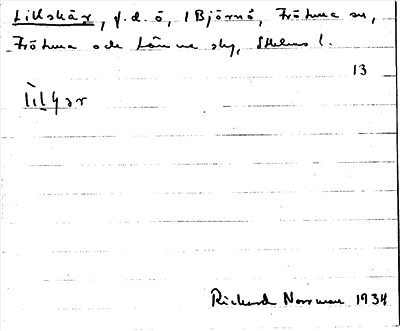 Lillskär, f.d. ö, 1 Björnö, Frötuna sn,
Frötuna och Länna skg, Sthlms l.
13
Richard Norrman 1934